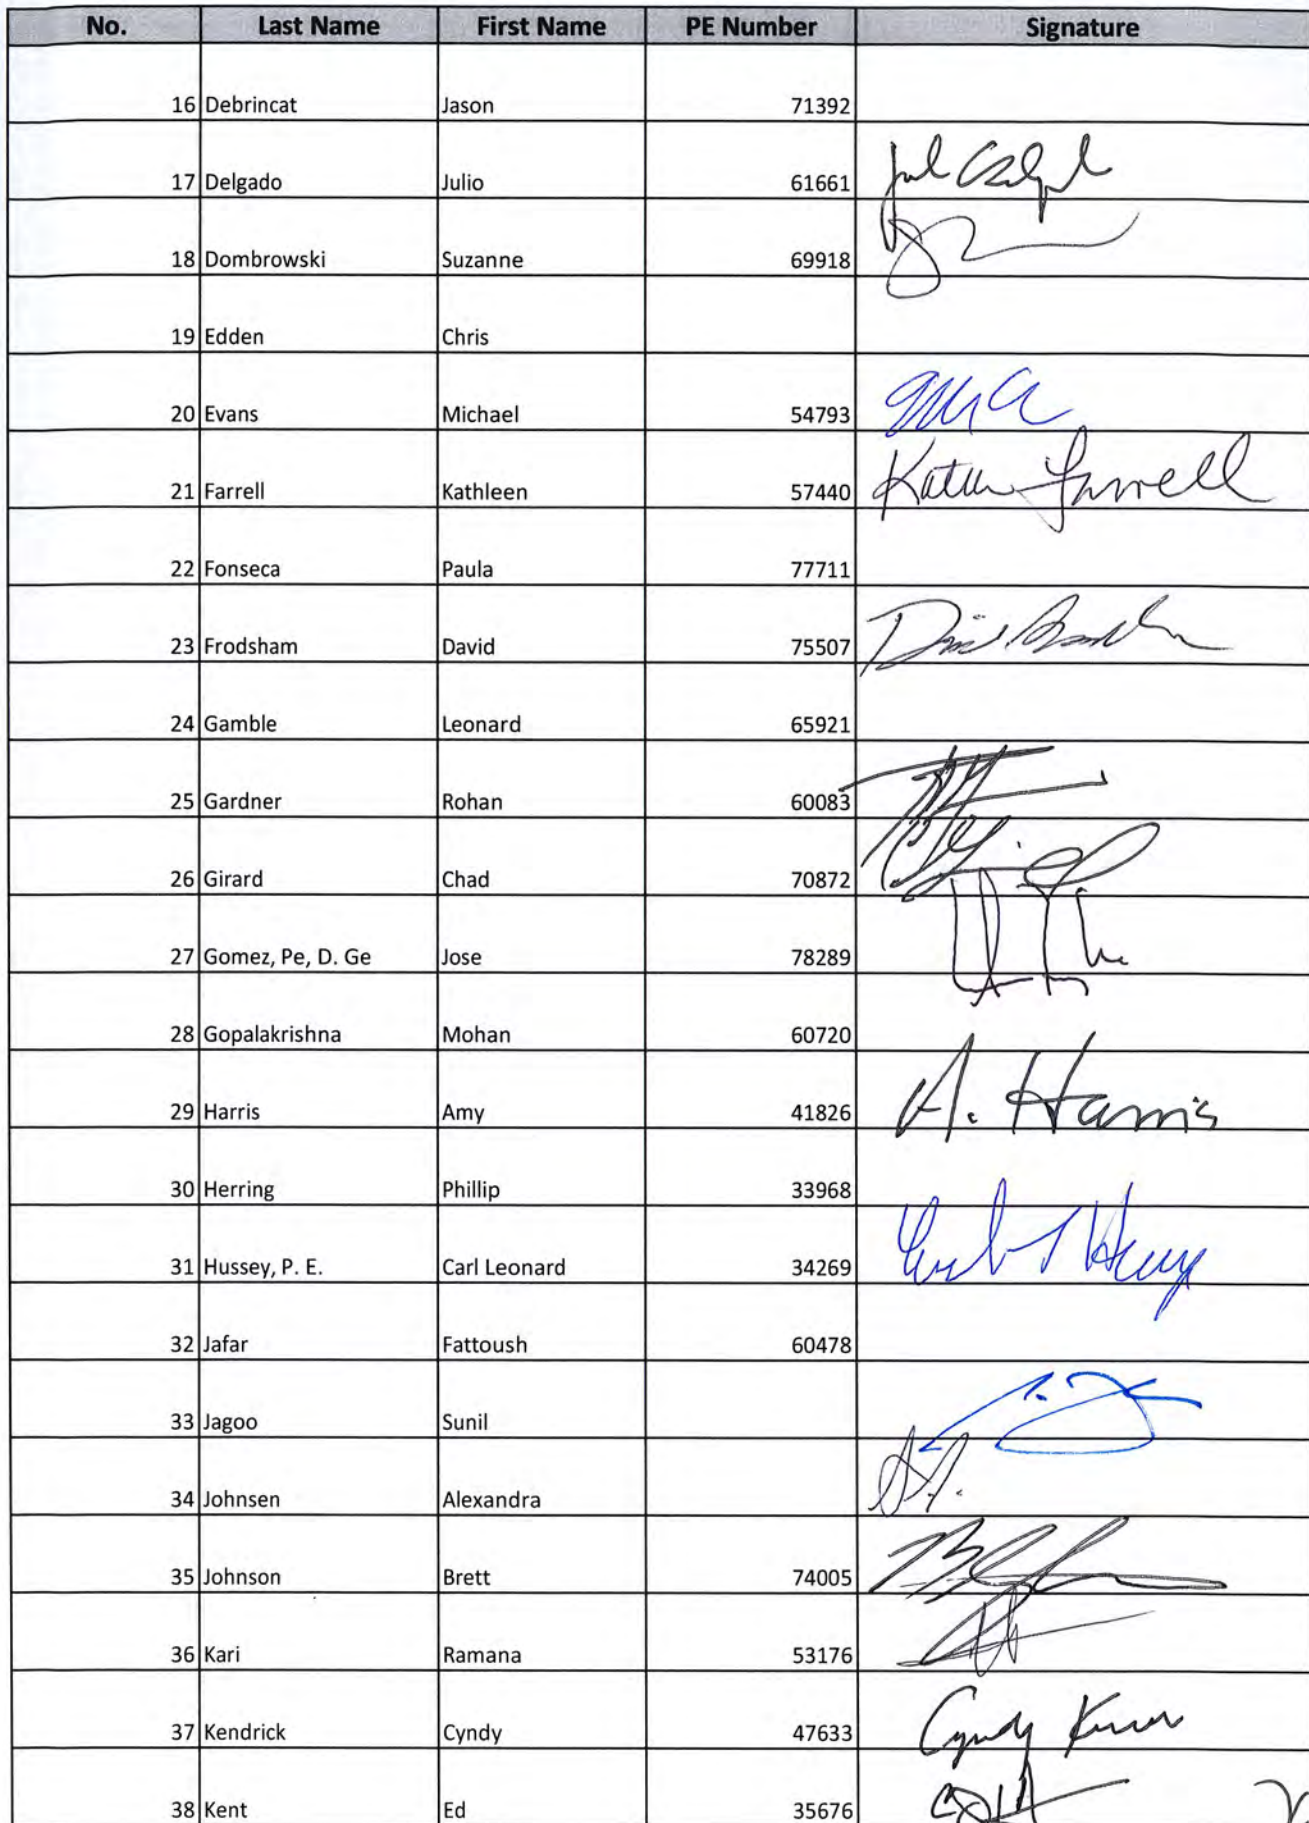 No. Last Name First Name PE Number Signature
16 Debrincat Jason 71392
17 Delgado Julio 61661
18 Dombrowski Suzanne 69918
19 Edden Chris
20 Evans Michael 54793
21 Farrell Kathleen 57440 Farrell
22 Fonseca Paula 77711
23 Frodsham David 75507
24 Gamble Leonard 65921
25 Gardner Rohan 60083
26 Girard Chad 70872
27 Gomez, Pe, D. Ge Jose 78289
28 Gopalakrishna Mohan 60720
29 Harris Amy 41826 A. Harris
30 Herring Phillip 33968
31 Hussey, P. E. Carl Leonard 34269
32 Jafar Fattoush 60478
33 Jagoo Sunil
34 Johnsen Alexandra
35 Johnson Brett 74005
36 Kari Ramana 53176
37 Kendrick Cyndy 47633 Cyndy
38 Kent Ed 35676